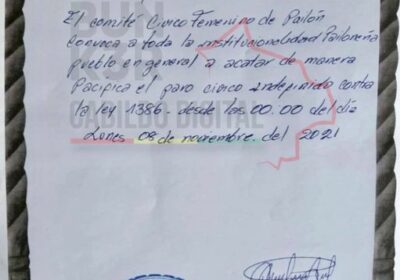 El comité Cívico Femenino de Pailón
Convoca a toda la institucionalidad Pailoneña
pueblo en general a acatar de manera
Pacifica el paro civico indefinido contra
la ley 1386. desde las 00.00 del día
Lunes 08 de noviembre del 2021
CABILDO DIGITAL